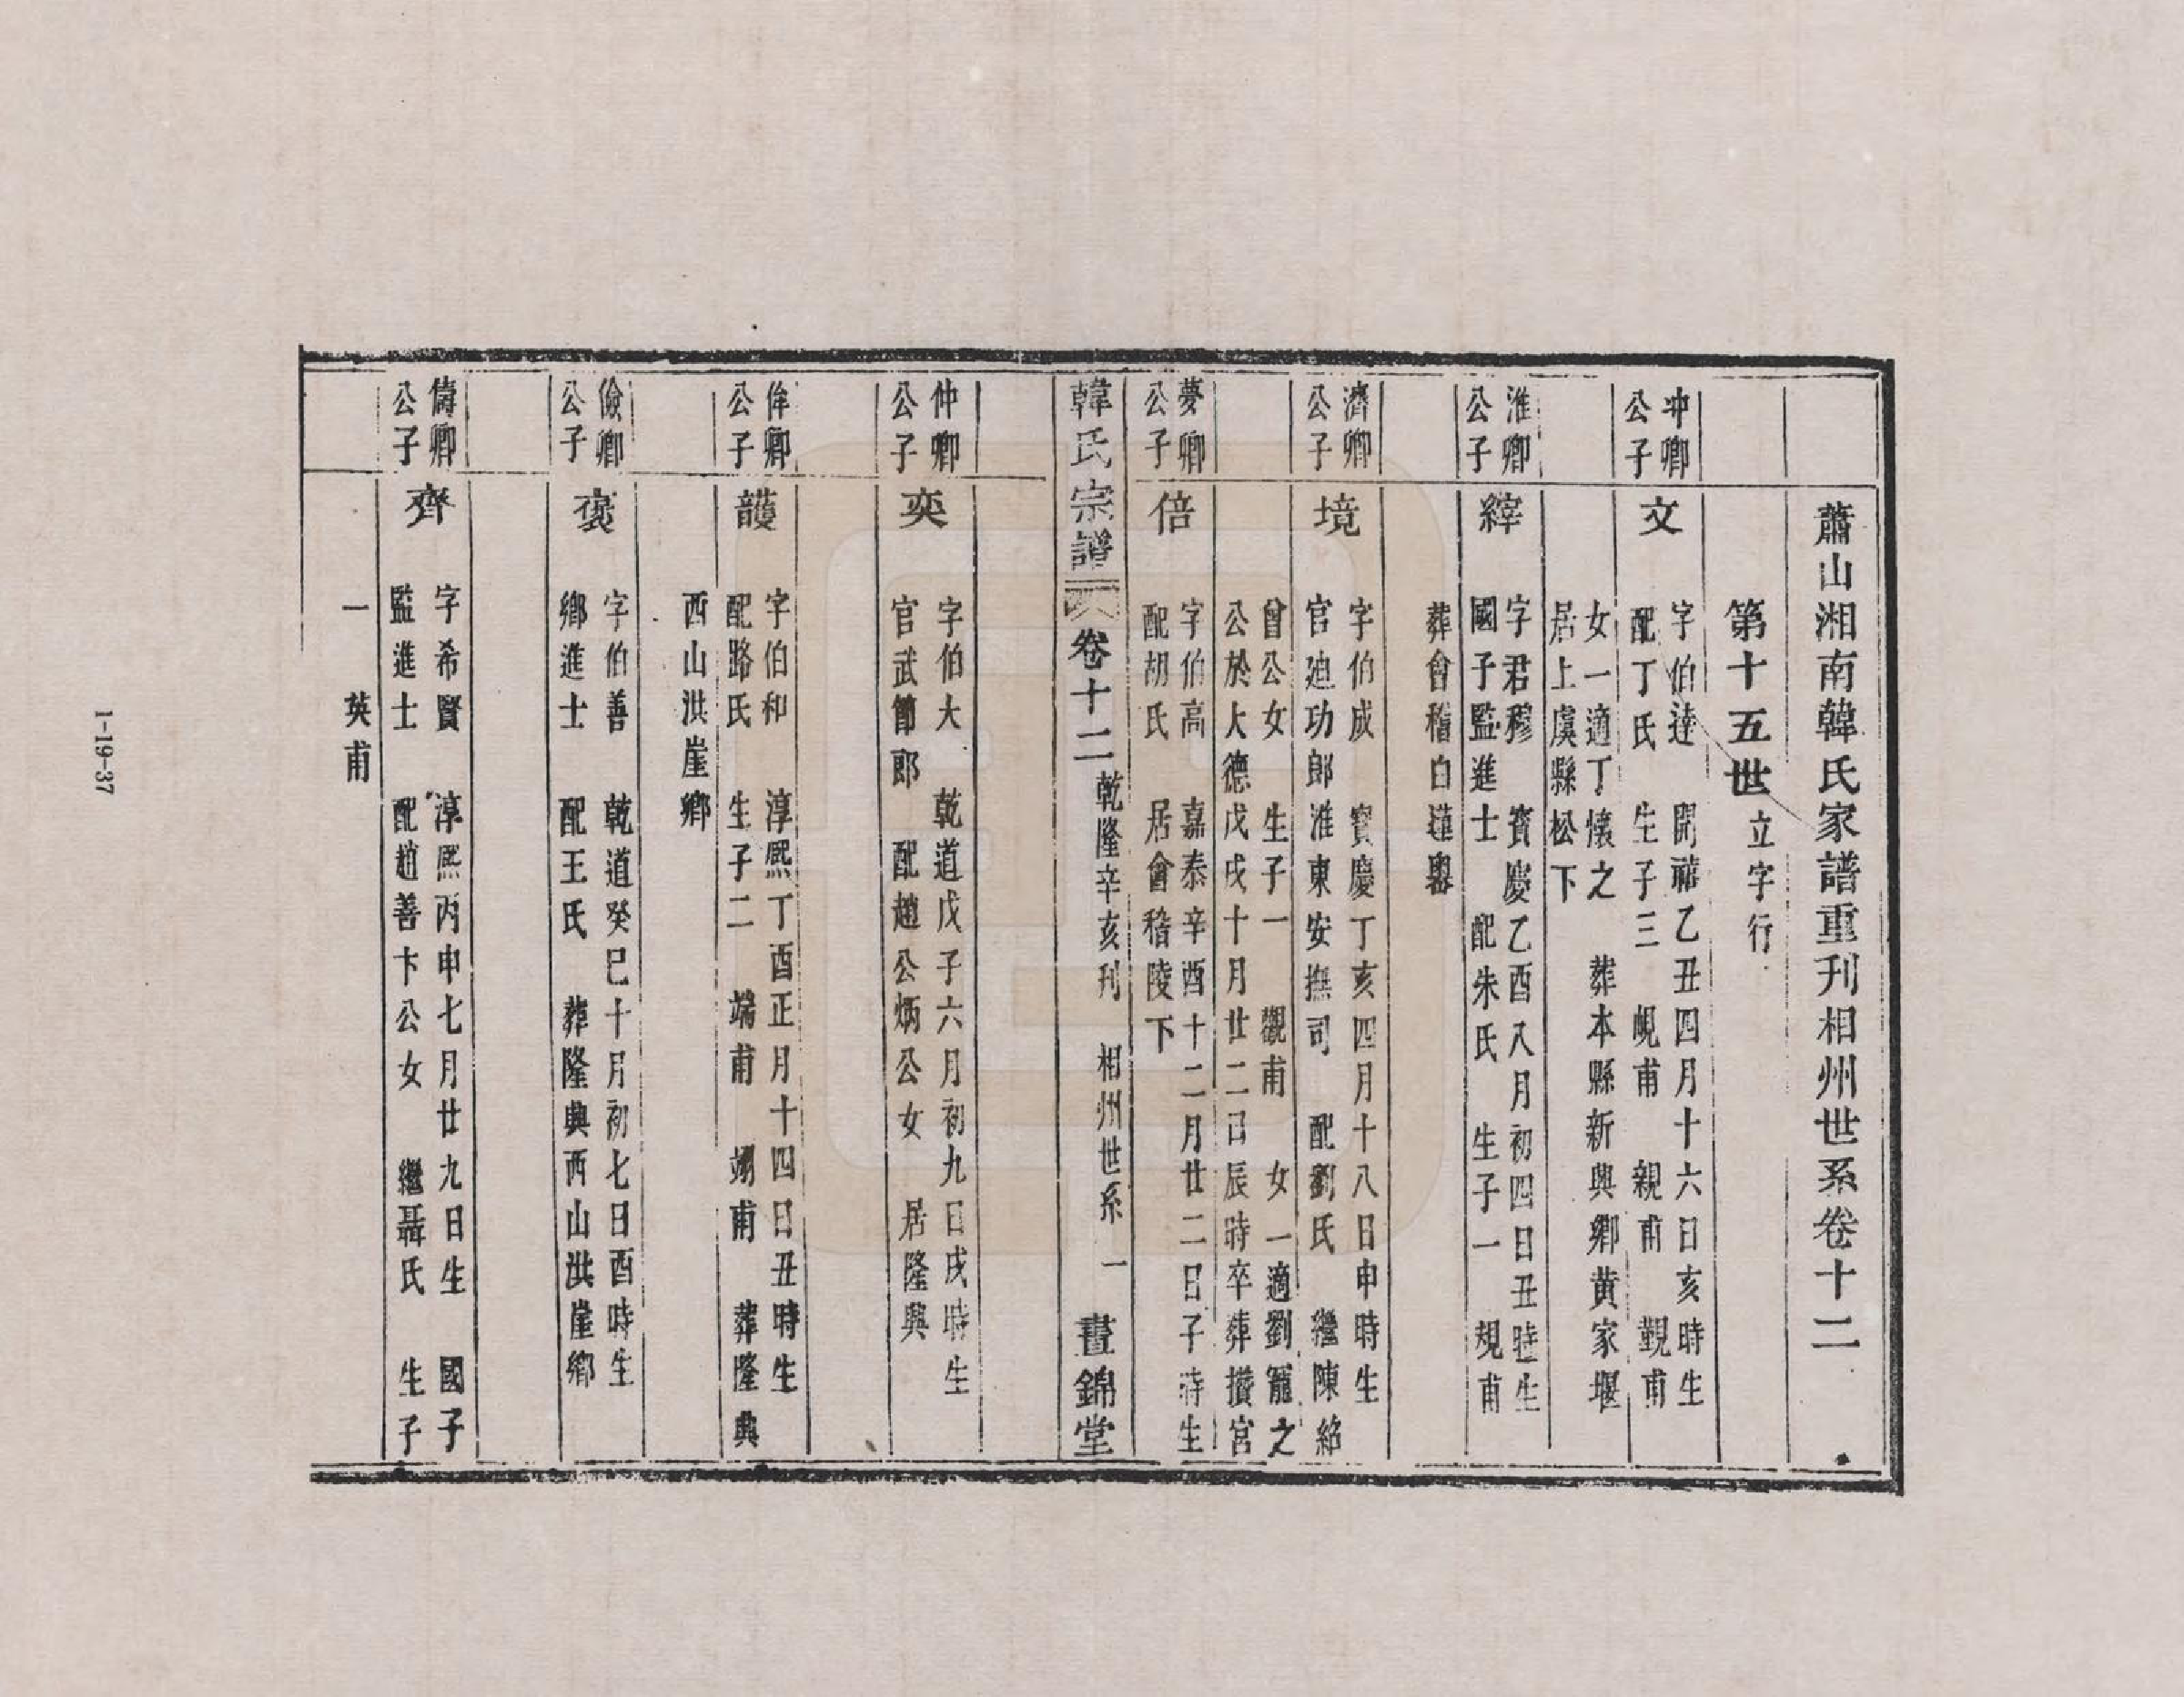 蕭山湘南韓氏家譜重刊相州世系卷十二
第十五世立字行
冲卿
公子
文
字伯達 開禧乙丑四月十六日亥時生
配丁氏 生子三 峴甫 親甫 覲甫
女一適丁懷之 葬本縣新興鄉黃家堰
居上虞縣松下
淮卿
公子
縡
字君穆 寶慶乙酉八月初四日丑時生
國子監進士 配朱氏 生子一 規甫
葬會稽白蓮嶴
濟卿
公子
境
字伯成 寶慶丁亥四月十八日申時生
官廸功郎淮東安撫司 配劉氏 繼陳紹
曾公女 生子一 觀甫 女一適劉寵之
公於大德戊戌十月廿二日辰時卒葬攢宮
夢卿
公子
倍
字伯高 嘉泰辛酉十二月廿二日子時生
配胡氏 居會稽陵下
韓氏宗譜 卷十二 乾隆辛亥刊 相州世系 一 晝錦堂
仲卿
公子
奕
字伯大 乾道戊子六月初九日戌時生
官武節郎 配趙公炳公女 居隆興
侔卿
公子
頀
字伯和 淳熙丁酉正月十四日丑時生
配路氏 生子二 端甫 翊甫 葬隆興
西山洪崖鄉
儉卿
公子
褒
字伯善 乾道癸巳十月初七日酉時生
鄉進士 配王氏 葬隆興西山洪崖鄉
儔卿
公子
齊
字希賢 淳熙丙申七月廿九日生 國子
監進士 配趙善卞公女 繼聶氏 生子
一 英甫
1-19-37